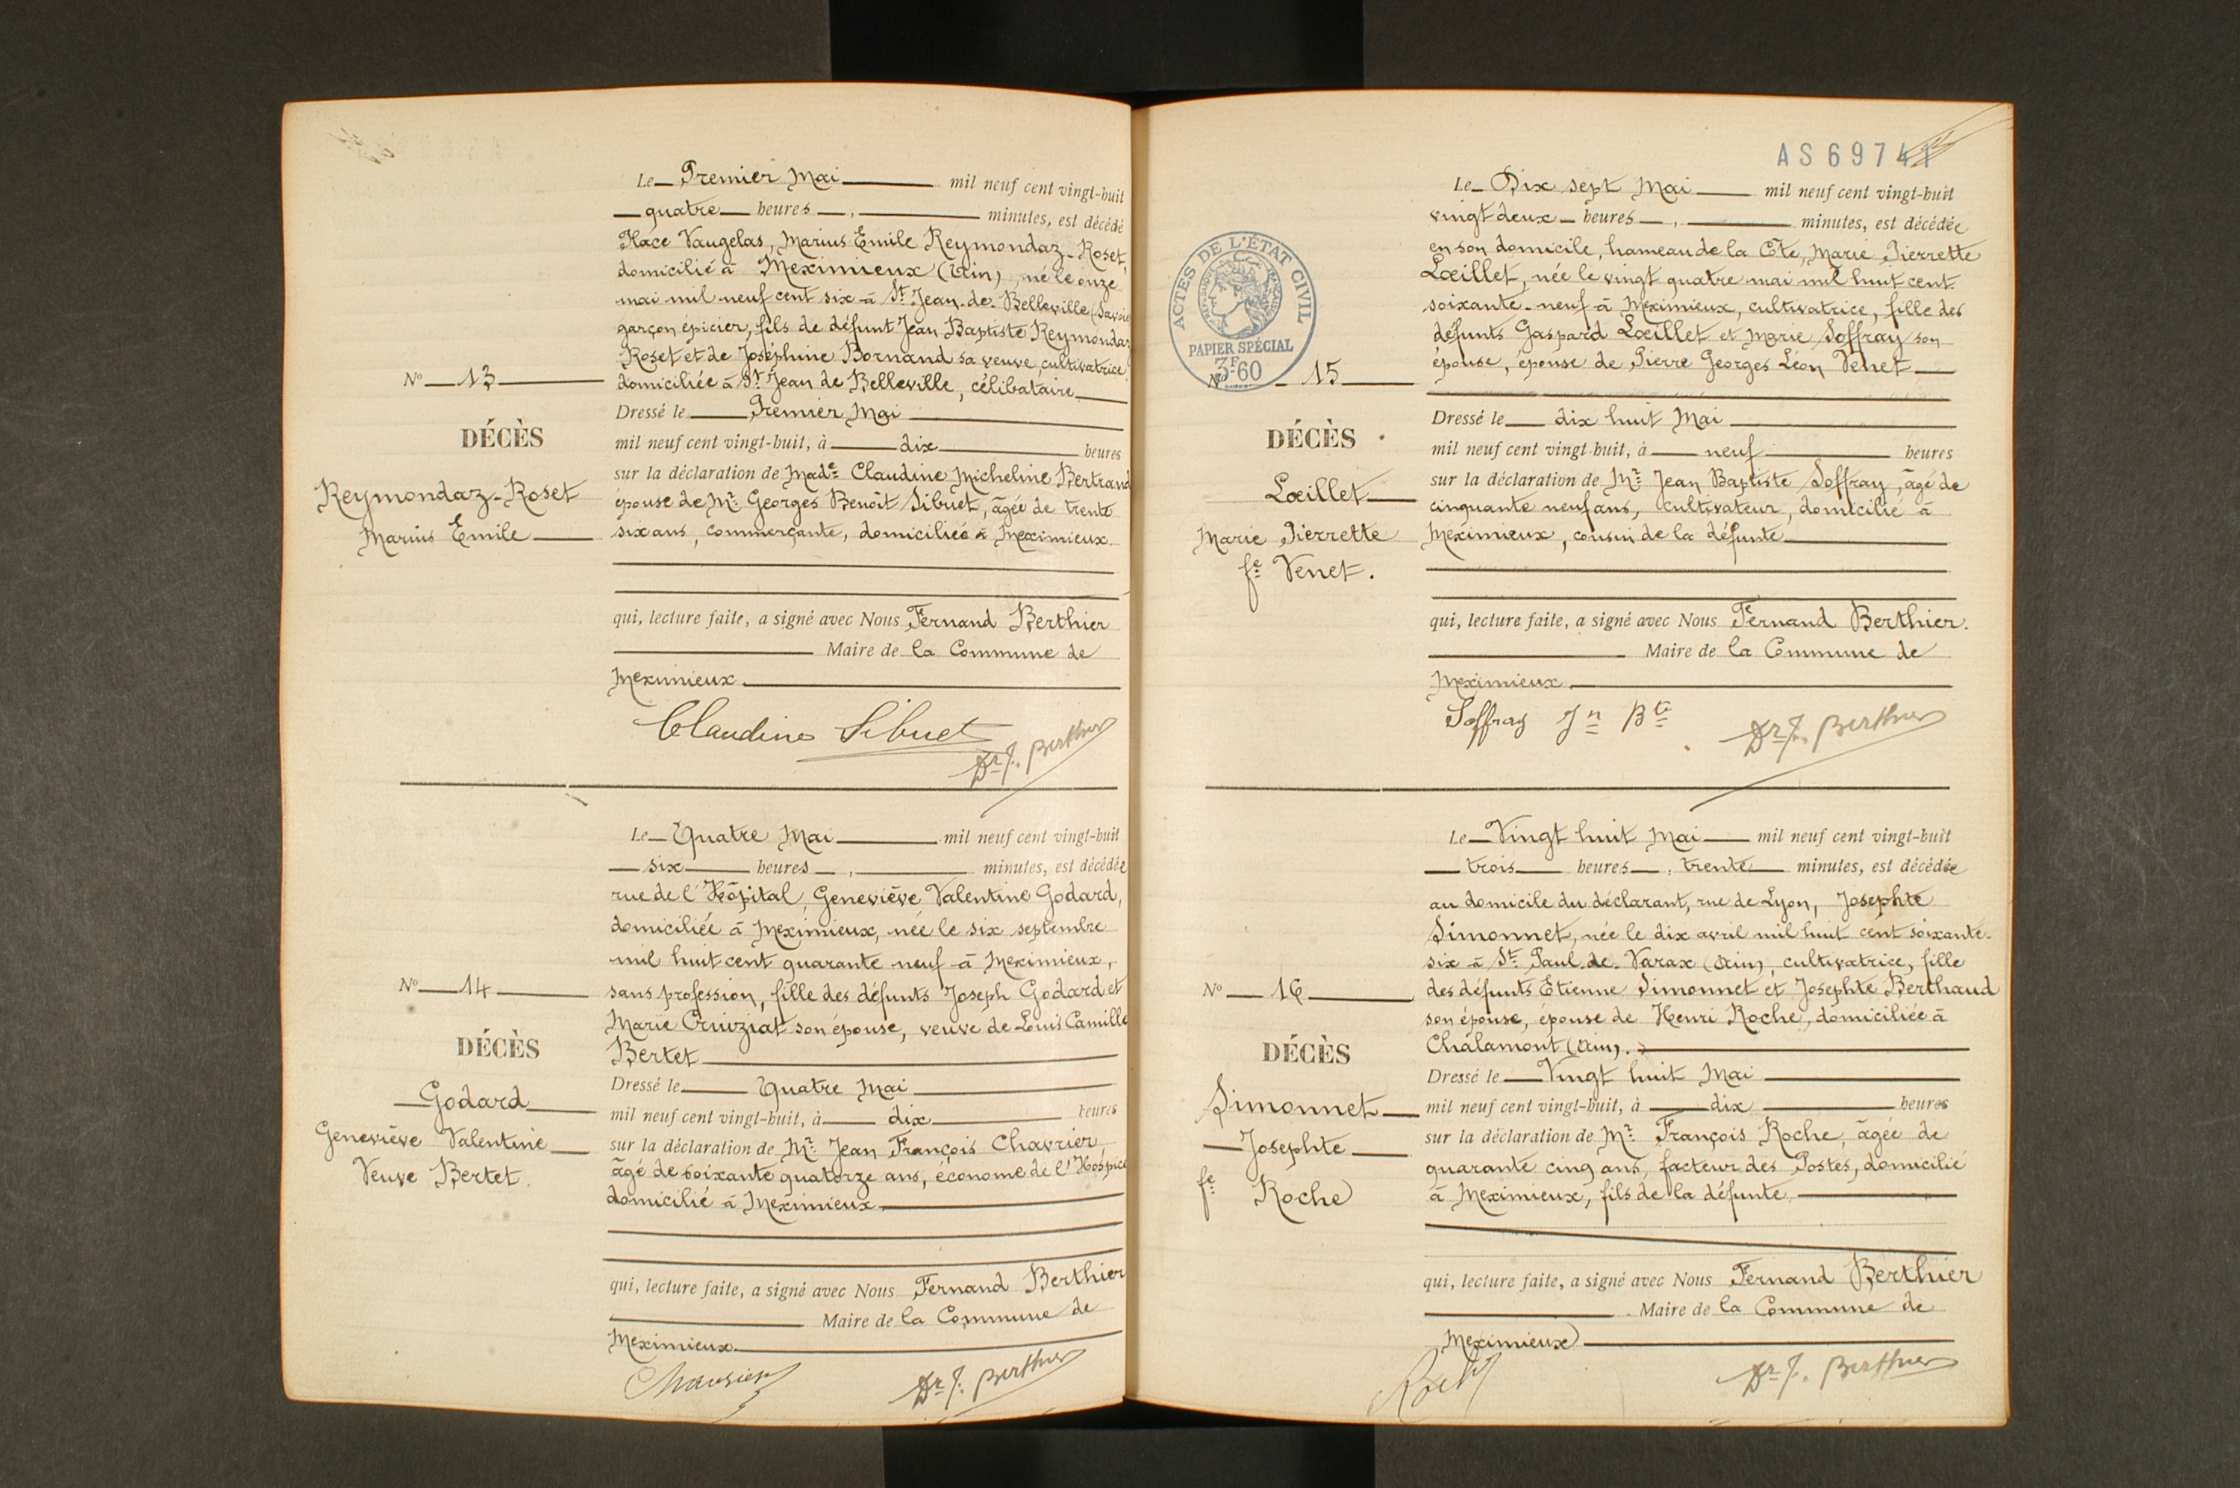 Le Premier Mai mil neuf cent vingt-huit
quatre heures , minutes, est décédé
Place Vaugelas, Marius Emile Reymondaz-Roset,
domicilié à Meximieux (Ain), né le onze
mai mil neuf cent six à St Jean-de-Belleville (Savoie
garçon épicier, fils de défunt Jean Baptiste Reymondaz
Roset et de Joséphine Bornand sa veuve, cultivatrice
No 13 domiciliée à St Jean de Belleville, célibataire
Dressé le Premier Mai
DÉCÈS
mil neuf cent vingt-huit, à dix heures
sur la déclaration de Made Claudine Micheline Bertrand
Reymondaz-Roset
épouse de Mr Georges Benoît Sibuet, âgée de trente
Marius Emile
six ans, commerçante, domiciliée à Meximieux
qui, lecture faite, a signé avec Nous Fernand Berthier
Maire de la Commune de
Meximieux
Claudine Sibuet
Dr F. Berthier
Le Quatre Mai mil neuf cent vingt-huit
six heures , minutes, est décédée
rue de l'Hôpital, Geneviève Valentine Godard,
domiciliée à Meximieux, née le six septembre
mil huit cent quarante neuf à Meximieux,
No 14 sans profession, fille des défunts Joseph Godard et
Marie Cruiziat son épouse, veuve de Louis Camille
DÉCÈS
Bertet
Dressé le Quatre Mai
Godard
mil neuf cent vingt-huit, à dix heures
Geneviève Valentine
sur la déclaration de Mr Jean François Chavrier
Veuve Bertet.
âgé de soixante quatorze ans, économe de l'Hospice
domicilié à Meximieux
qui, lecture faite, a signé avec Nous Fernand Berthier
Maire de la Commune de
Meximieux
Chavrier
Dr F. Berthier
AS 69741
Le Dix sept Mai mil neuf cent vingt-huit
vingt deux heures , minutes, est décédée
en son domicile, hameau de la Côte, Marie Pierrette
Lœillet, née le vingt quatre mai mil huit cent
soixante-neuf à Meximieux, cultivatrice, fille des
défunts Gaspard Lœillet et Marie Soffray son
épouse, épouse de Pierre Georges Léon Venet
ACTES DE L'ÉTAT CIVIL
PAPIER SPÉCIAL
3F60
No 15
Dressé le dix huit Mai
DÉCÈS
mil neuf cent vingt-huit, à neuf heures
sur la déclaration de Mr Jean Baptiste Soffray, âgé de
Lœillet
cinquante neuf ans, cultivateur, domicilié à
Marie Pierrette
Meximieux, cousin de la défunte
fe Venet.
qui, lecture faite, a signé avec Nous Fernand Berthier.
Maire de la Commune de
Meximieux
Soffray Jn Bte
Dr F. Berthier
Le Vingt huit Mai mil neuf cent vingt-huit
trois heures , trente minutes, est décédée
au domicile du déclarant, rue de Lyon, Josephte
Simonnet, née le dix avril mil huit cent soixante-
six à St Paul-de-Varax (Ain), cultivatrice, fille
No 16 des défunts Etienne Simonnet et Josephte Berthaud
son épouse, épouse de Henri Roche, domiciliée à
DÉCÈS
Châlamont (Ain).
Dressé le Vingt huit Mai
Simonnet
mil neuf cent vingt-huit, à dix heures
Josephte
sur la déclaration de Mr François Roche, âgée de
quarante cinq ans, facteur des Postes, domicilié
fe Roche
à Meximieux, fils de la défunte
qui, lecture faite, a signé avec Nous Fernand Berthier
Maire de la Commune de
Meximieux
Roche
Dr F. Berthier